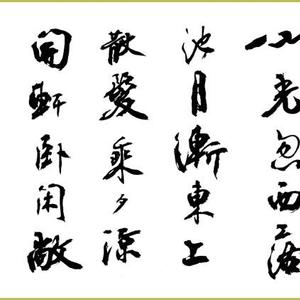 山光忽西落
池月漸東上
散髮乘夕涼
開軒卧閑敞